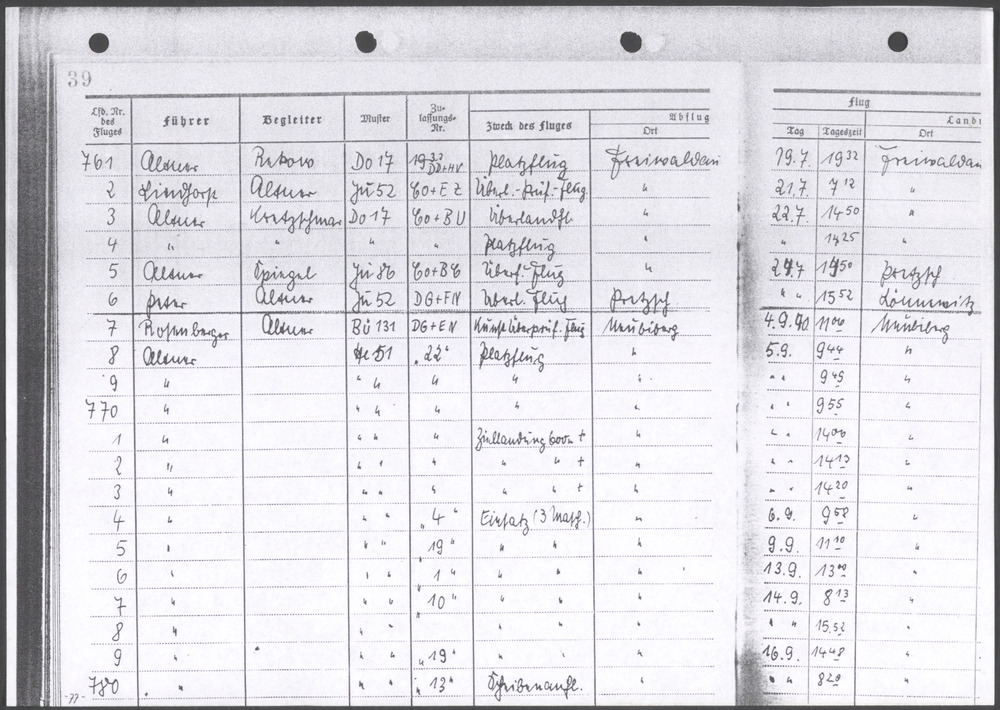 39
Lfd. Nr. des Fluges Führer Begleiter Muster Zulassungs-Nr. Zweck des Fluges Abflug Ort Flug Tag Tageszeit Landu Ort
761 Altner Rekow Do 17 Platzflug Freiwaldau 19.7. 19 32 Freiwaldau
2 Lindhorst Altner Ju 52 CO+EZ Überl.-Prüf.-Flug " 21.7. 7 12 "
3 Altner Kretzschmar Do 17 CO+BU Überlandfl. " 22.7. 14 50 "
4 " " " " Platzflug " " 14 25 "
5 Altner Spiegel Ju 86 CO+BC Überf.-Flug " 24.7 14 50 Pretzsch
6 Peter Altner Ju 52 DG+FN Überl. Flug Pretzsch " " 15 52 Lönnewitz
7 Rosenberger Altner Bü 131 DG+EN Kunstüberprüf.-Flug Neubiberg 4.9.40 11 00 Neubiberg
8 Altner He 51 "22" Platzflug " 5.9. 9 44 "
9 " " " " " " " " 9 49 "
770 " " " " " " " " 9 55 "
1 " " " " Ziellandung 600m + " " " 14 00 "
2 " " " " " " + " " " 14 13 "
3 " " " " " " + " " " 14 20 "
4 " " " "4" Einsatz (3 Masch.) " 6.9. 9 58 "
5 " " " "19" " " " 9.9. 11 10 "
6 " " " "1" " " " 13.9. 13 00 "
7 " " " "10" " " " 14.9. 8 13 "
8 " " " " " " " " 15.52 "
9 " " " "19" " " " 16.9. 14 48 "
780 " " " "13" Scheibenanfl. " " " 8 20 "
-77-